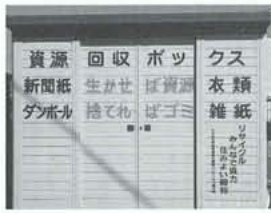 資源回収ボックス
新聞紙 生かせば資源 衣類
ダンボール 捨てればゴミ 雑紙
リサイクル
みんなで協力